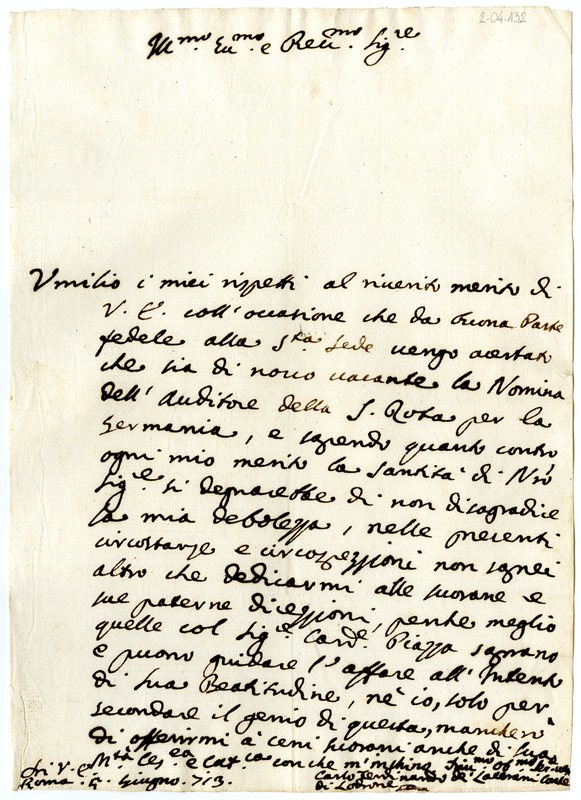 2-04-132
Ill.mo Em.mo e Rev.mo Sig.re
Umilio i miei rispetti al riverito merito di
V. E. coll'occasione che da buona Parte
fedele alla S.ta Sede vengo acertato
che sia di novo vacante la Nomina
dell'Auditore della S. Rota per la
Germania, e sapendo quanto contro
ogni mio merito la santità di Nro
Sig.e si degnarebbe di non disagradire
la mia debolezza, nelle presenti
circostanze e circospezzioni non saprei
altro che dedicarmi alle sovrane e
sue paterne direzzioni, perche meglio
quelle col Sig.e Card.e Piazza saprano
e puono guidare l'affare all'Intento
di sua Beatitudine, nè io, solo per
secondare il genio di questa, mancherò
di offerirmi à ceni sovrani anche di sua
M.tà Ces.ea e Cat.ca con che m'
Di V. E.
Roma. Giugno. 713.
Carlo Ferdinando de Conte
di Lodrone